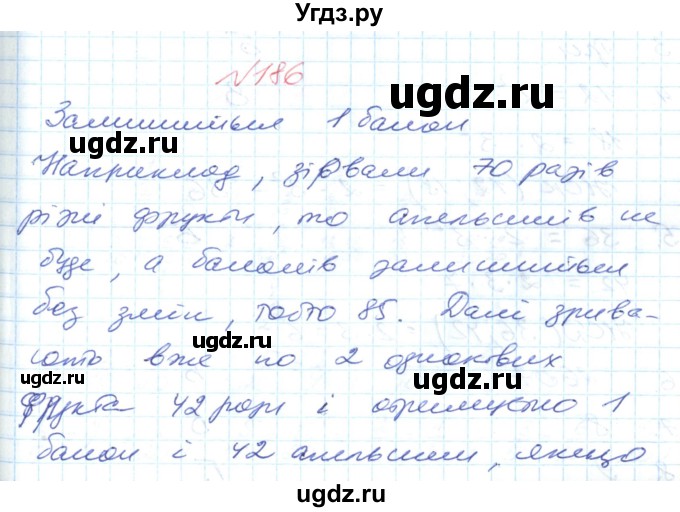 Угдз.ру
№186
ugdz.ru
Залишиться 1 банан
ugdz.ru
Наприклад, зірвали 70 разів
різні фрукти, то апельсинів не
буде, а бананів залишиться
без змін, тобто 85. Далі зрива-
ugdz.ru
ють вже по 2 однакових
ugdz.ru
ugdz.ru
фрукта 42 рази і отримуємо 1
банан і 42 апельсини, якщо
ugdz.ru